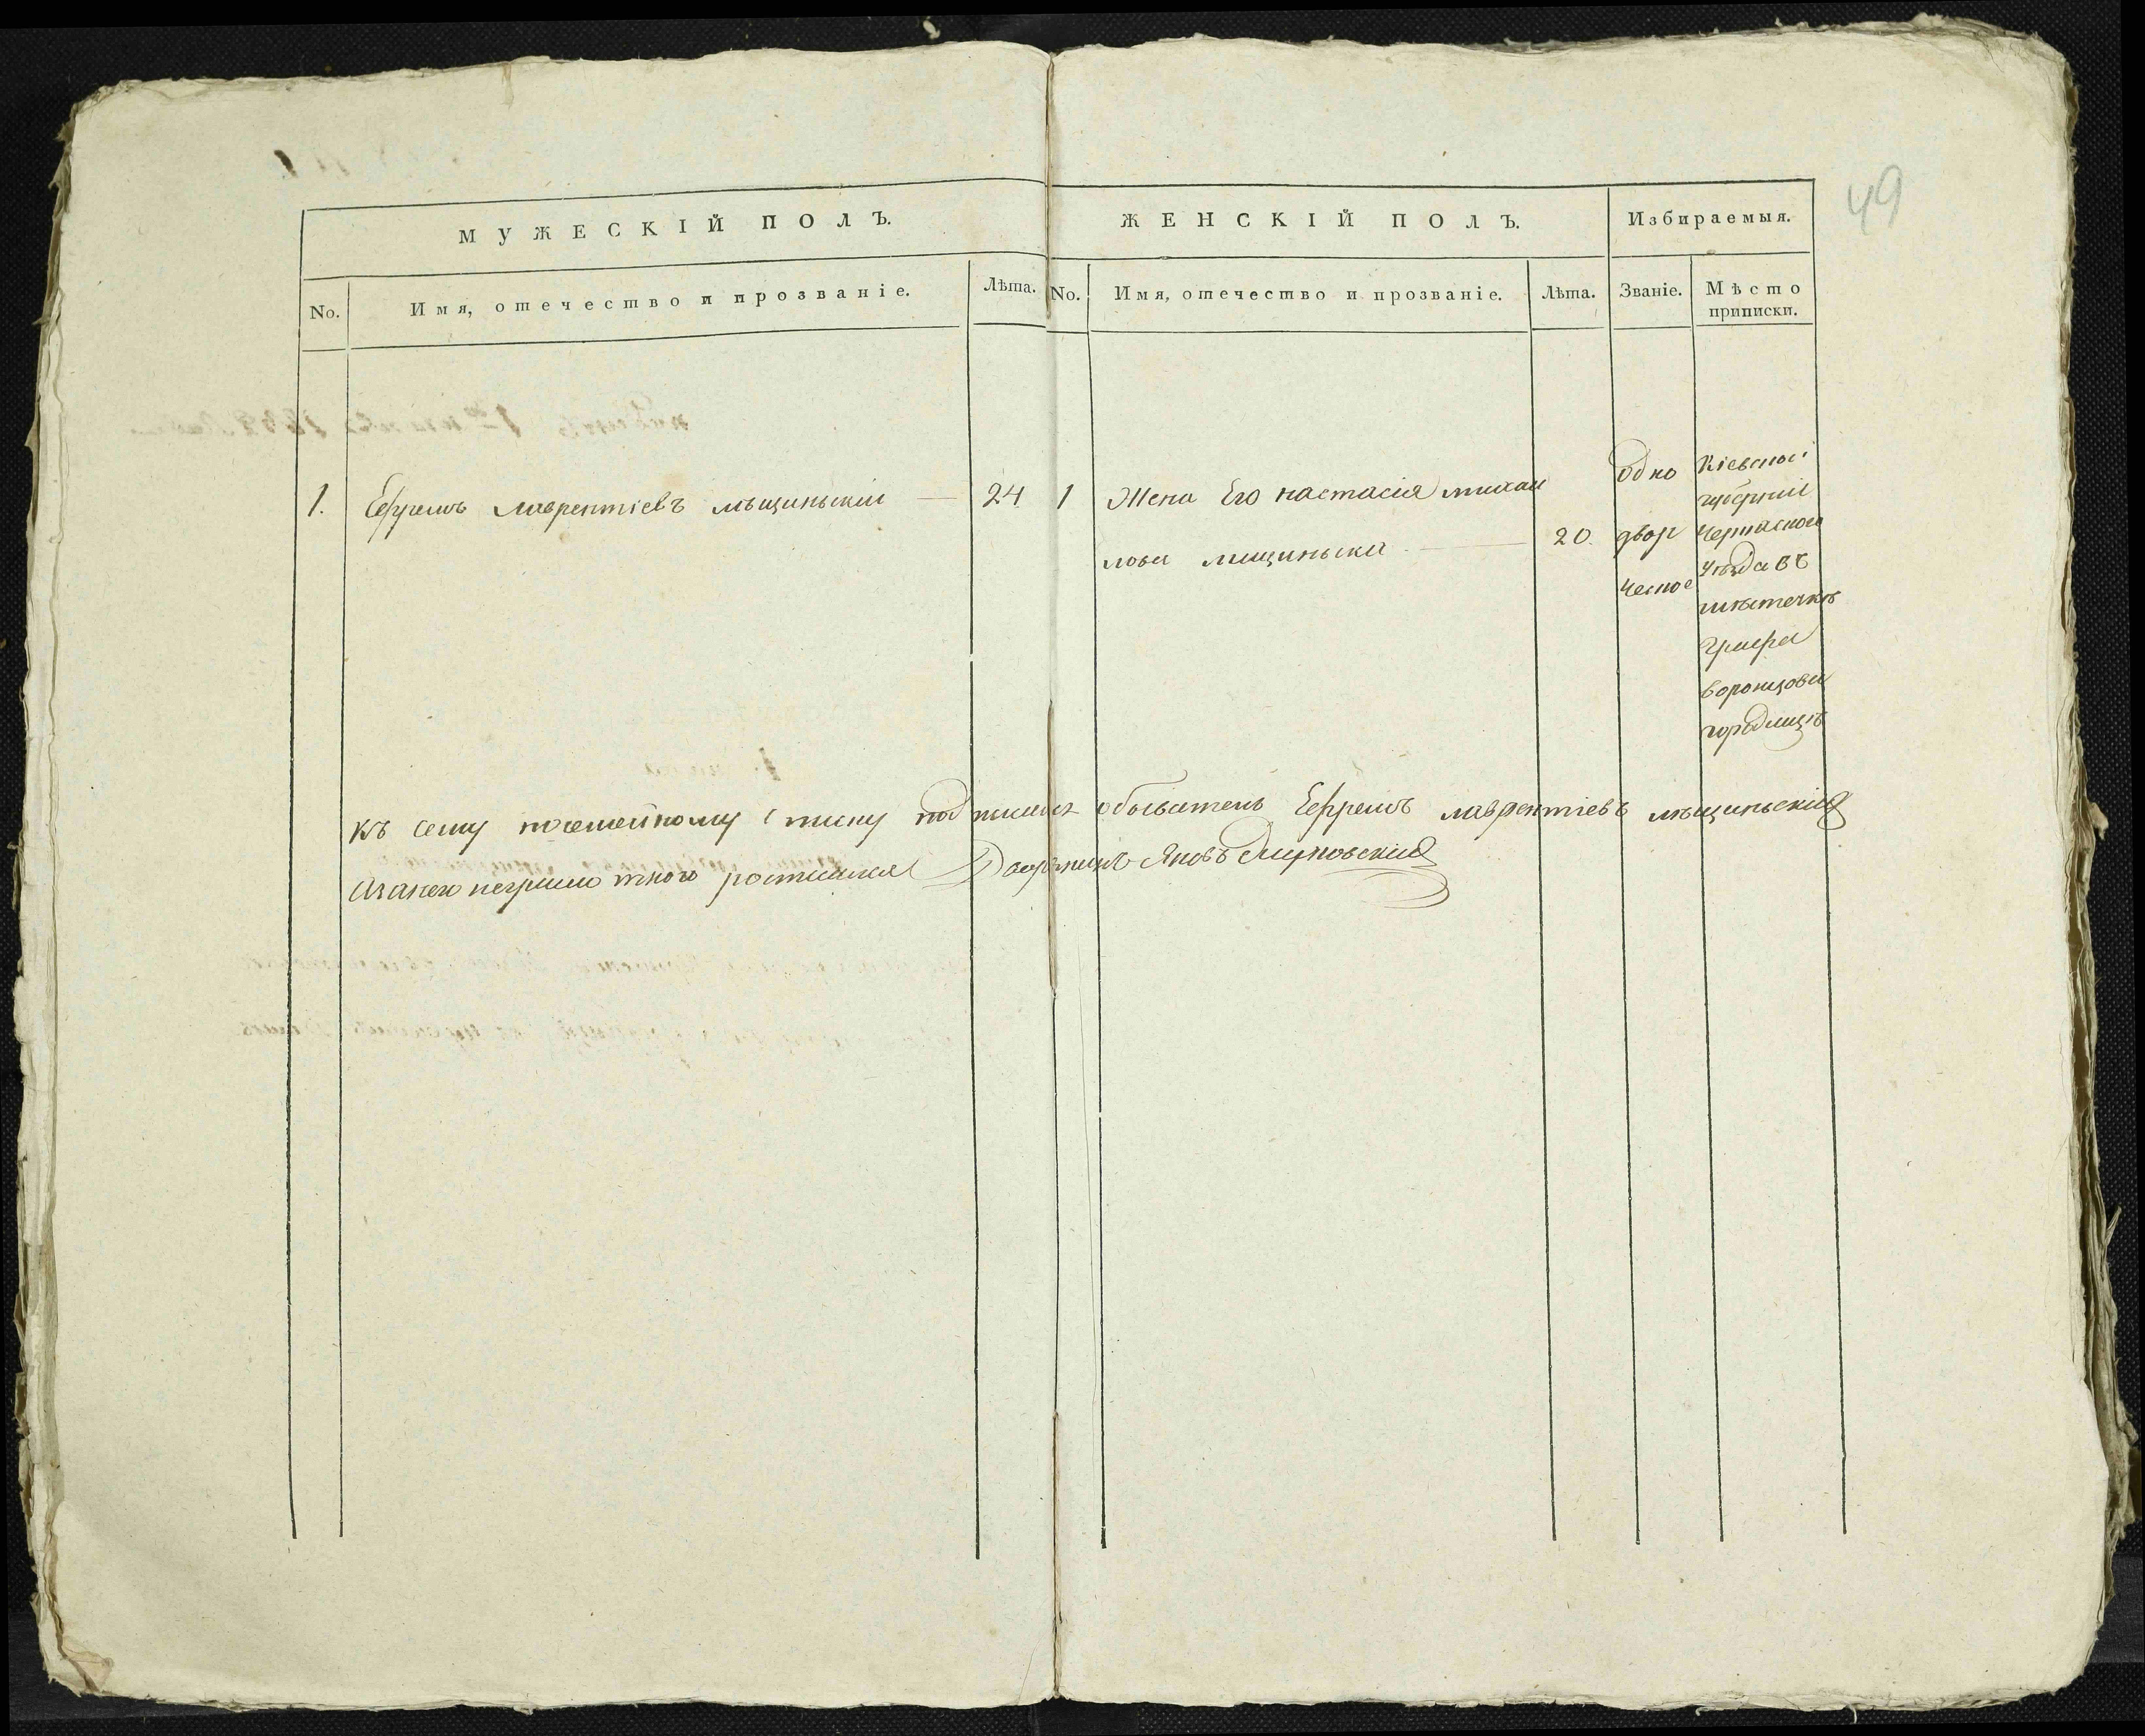 49
МУЖЕСКІЙ ПОЛЪ.
ЖЕНСКІЙ ПОЛЪ.
Избираемыя.
No.
Имя, отечество и прозваніе.
Лѣта.
No.
Имя, отечество и прозваніе.
Лѣта.
Званіе.
Мѣсто
приписки.
1.
Ефремъ лаврентіевъ мѣщиньскій
24
1
Жена Его настасія михаи
лова мищиньска
20.
одно
двор
чесное
Кіевской
губерніи
Черкаского
уѣзда въ
мѣстечкѣ
Графа
воронцова
городищѣ
къ сему посемейному списку подписался обыватель Ефремъ лаврентіевъ мѣщиньскій
Азанего неграмотного росписался Дворянинъ Яковъ